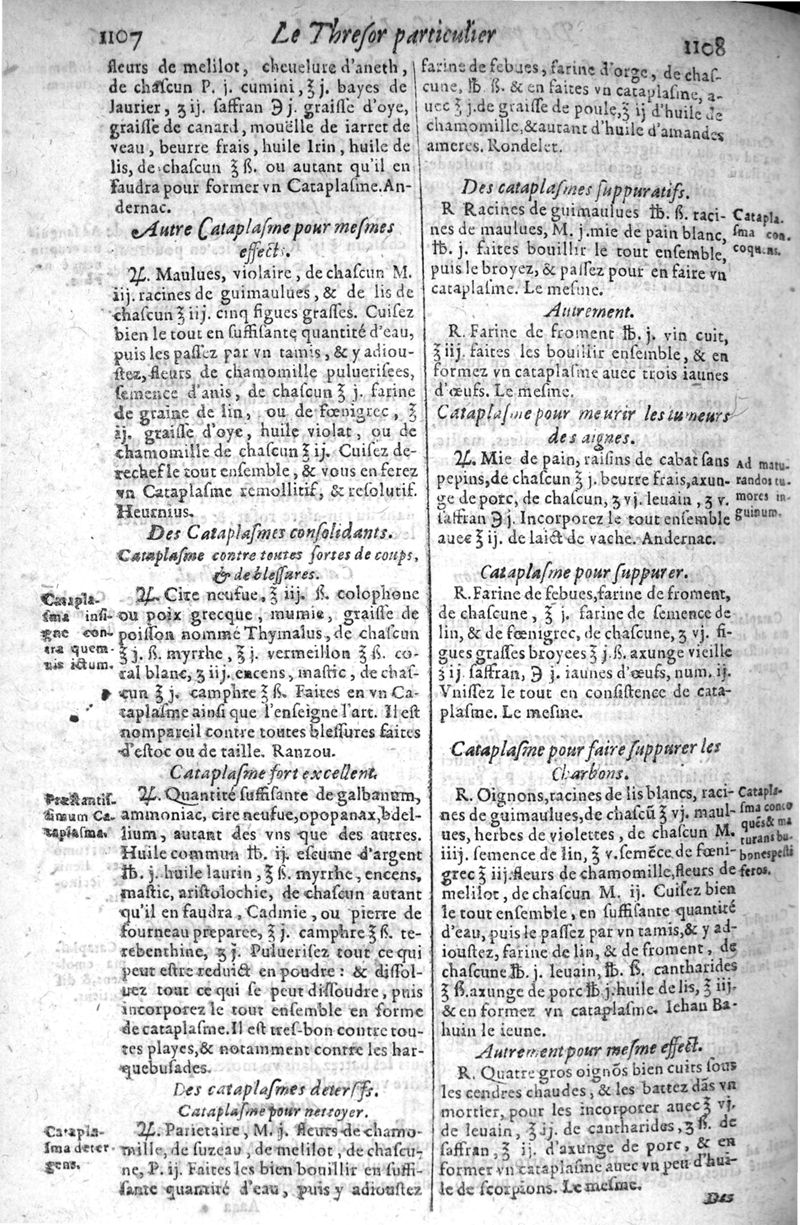 1107
Le Threſor particulier
1108
fleurs de melilot, cheuelure d'aneth,
de chaſcun P. j. cumini, ℥ j. bayes de
laurier, ʒ ij. ſaffran ℈ j. graiſſe d'oye,
graiſſe de canard, mouëlle de iarret de
veau, beurre frais, huile Irin, huile de
lis, de chaſcun ℥ ß. ou autant qu'il en
faudra pour former vn Cataplaſme. An-
dernac.
Autre Cataplaſme pour meſmes
effect.
♃. Maulues, violaire, de chaſcun M.
iij. racines de guimaulues, & de lis de
chaſcun ℥ iij. cinq figues graſſes. Cuiſez
bien le tout en ſuffiſante quantité d'eau,
puis les paſſez par vn tamis, & y adiou-
ſtez, fleurs de chamomille pulueriſees,
ſemence d'anis, de chaſcun ℥ j. farine
de graine de lin, ou de fœnigrec, ℥
ij. graiſſe d'oye, huile violat, ou de
chamomille de chaſcun ℥ ij. Cuiſez de-
rechef le tout enſemble, & vous en ferez
vn Cataplaſme remollitif, & reſolutif.
Heurnius.
Des Cataplaſmes conſolidants.
Cataplaſme contre toutes ſortes de coups,
& de bleſſures.
Catapla-
ſma inſi-
gne con-
tra quem-
uis ictum.
♃. Cire neufue, ℥ iij. ß. colophone
ou poix grecque, mumie, graiſſe de
poiſſon nommé Thymalus, de chaſcun
℥ j. ß. myrrhe, ℥ j. vermeillon ℥ ß. co-
ral blanc, ʒ iij. encens, maſtic, de chaſ-
cun ℥ j. camphre ℥ ß. Faites en vn Ca-
taplaſme ainſi que l'enſeigne l'art. Il eſt
nompareil contre toutes bleſſures faites
d'eſtoc ou de taille. Ranzou.
Cataplaſme fort excellent.
Præſtantiſ-
ſimum Ca-
taplaſma.
♃. Quantité ſuffiſante de galbanum,
ammoniac, cire neufue, opopanax, bdel-
lium, autant des vns que des autres.
Huile commun ℔. ij. eſcume d'argent
℔. j. huile laurin, ℥ ß. myrrhe, encens,
maſtic, ariſtolochie, de chaſcun autant
qu'il en faudra, Cadmie, ou pierre de
fourneau preparee, ℥ j. camphre ℥ ß. te-
rebenthine, ʒ j. Pulueriſez tout ce qui
peut eſtre reduict en poudre: & diſſol-
uez tout ce qui ſe peut diſſoudre, puis
incorporez le tout enſemble en forme
de cataplaſme. Il eſt tres-bon contre tou-
tes playes, & notamment contre les har-
quebuſades.
Des cataplaſmes deterſifs.
Cataplaſme pour nettoyer.
Catapla-
ſma deter-
gens.
♃. Parietaire, M. j. fleurs de chamo-
mille, de ſuzeau, de melilot, de chaſcu-
ne, P. ij. Faites les bien bouillir en ſuffi-
ſante quantité d'eau, puis y adiouſtez
farine de febues, farine d'orge, de chaſ-
cune, ℔. ß. & en faites vn cataplaſme, a-
uec ℥ j. de graiſſe de poule, ℥ ij d'huile de
chamomille, & autant d'huile d'amandes
ameres. Rondelet.
Des cataplaſmes ſuppuratifs.
R Racines de guimaulues ℔. ß. raci-
nes de maulues, M. j. mie de pain blanc,
℔. j. faites bouillir le tout enſemble,
puis le broyez, & paſſez pour en faire vn
cataplaſme. Le meſme.
Catapla.
ſma con.
coquens.
Autrement.
R. Farine de froment ℔. j. vin cuit,
℥ iij. faites les bouillir enſemble, & en
formez vn cataplaſme auec trois iaunes
d'œufs. Le meſme.
Cataplaſme pour meurir les tumeurs
des aignes.
♃. Mie de pain, raiſins de cabat ſans
pepins, de chaſcun ℥ j. beurre frais, axun-
ge de porc, de chaſcun, ʒ vj. leuain, ʒ v.
ſaffran ℈ j. Incorporez le tout enſemble
auec ℥ ij. de laict de vache. Andernac.
Ad matu-
randos tu-
mores in-
guinum.
Cataplaſme pour ſuppurer.
R. Farine de febues, farine de froment,
de chaſcune, ℥ j. farine de ſemence de
lin, & de fœnigrec, de chaſcune, ʒ vj. fi-
gues graſſes broyees ℥ j. ß. axunge vieille
℥ ij. ſaffran, ℈ j. iaunes d'œufs, num. ij.
Vniſſez le tout en conſiſtence de cata-
plaſme. Le meſme.
Cataplaſme pour faire ſuppurer les
Charbons.
R. Oignons, racines de lis blancs, raci-
nes de guimaulues, de chaſcũ ℥ vj. maul-
ues, herbes de violettes, de chaſcun M.
iiij. ſemence de lin, ℥ v. ſemẽce de fœni-
grec ℥ iij. fleurs de chamomille, fleurs de
melilot, de chaſcun M. ij. Cuiſez bien
le tout enſemble, en ſuffiſante quantité
d'eau, puis le paſſez par vn tamis, & y ad-
iouſtez, farine de lin, & de froment, de
chaſcune ℔. j. leuain, ℔. ß. cantharides
℥ ß. axunge de porc ℔ j. huile de lis, ℥ iij.
& en formez vn cataplaſme. Iehan Ba-
huin le ieune.
Catapla-
ſma conco
qués & ma
turans bu-
bones peſti
feros.
Autrement pour meſme effect.
R. Quatre gros oignõs bien cuits ſous
les cendres chaudes, & les battez dãs vn
mortier, pour les incorporer auec ℥ vj.
de leuain, ℥ ij. de cantharides, ʒ ß. de
ſaffran, ℥ ij. d'axunge de porc, & en
former vn cataplaſme auec vn peu d'hui-
le de ſcorpions. Le meſme.
Des